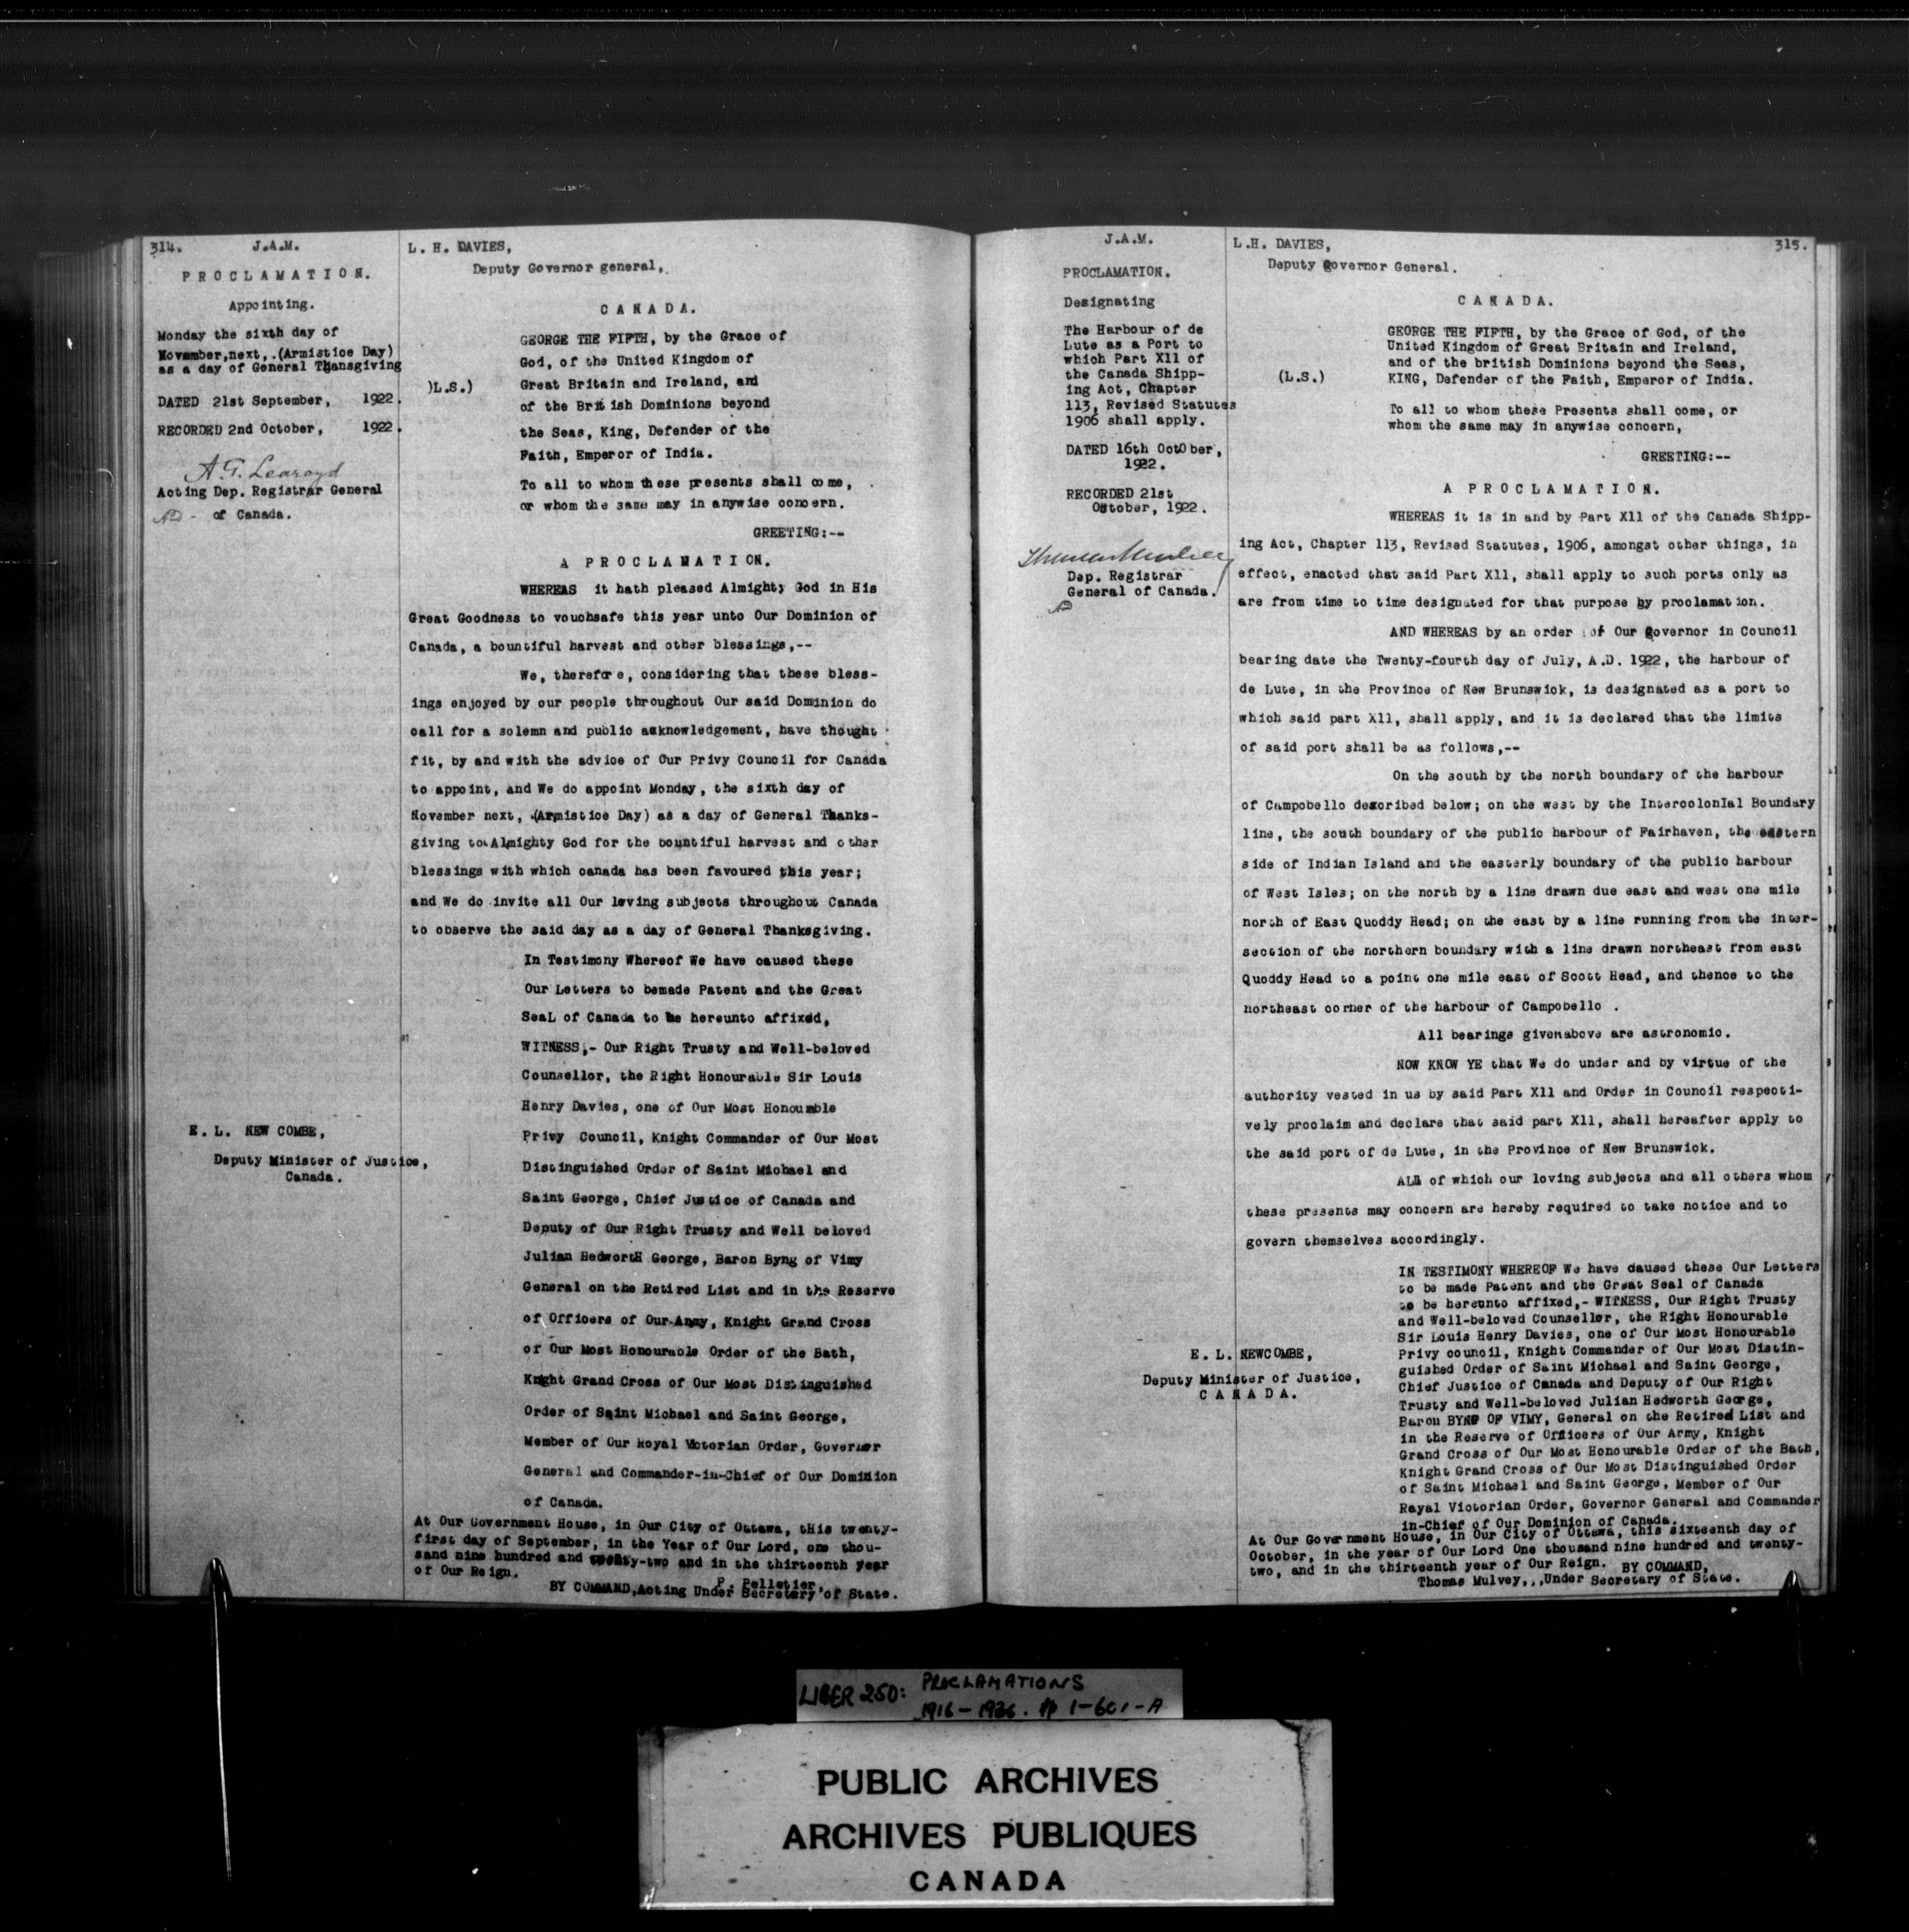 314.
J.A.M.
PROCLAMATION.
Appointing.
Monday the sixth day of
November,next,.(Armistice Day)
as a day of General Thansgiving
DATED 21st September, 1922.
RECORDED 2nd October, 1922.
A. G. Learoyd
Acting Dep. Registrar General
of Canada.
E. L. NEW COMBE,
Deputy Minister of Justice,
Canada.
L. H. DAVIES,
Deputy Governor general,
CANADA.
)L.S.)
GEORGE THE FIFTH, by the Grace of
God, of the United Kingdom of
Great Britain and Ireland, and
of the British Dominions beyond
the Seas, King, Defender of the
Faith, Emperor of India.
To all to whom these presents shall come,
or whom the same may in anywise concern.
GREETING:--
A PROCLAMATION.
WHEREAS it hath pleased Almighty God in His
Great Goodness to vouchsafe this year unto Our Dominion of
Canada, a bountiful harvest and other blessings,--
We, therefore, considering that these bless-
ings enjoyed by our people throughout Our said Dominion do
call for a solemn and public acknowledgement, have thought
fit, by and with the advice of Our Privy Council for Canada
to appoint, and We do appoint Monday, the sixth day of
November next, (Armistice Day) as a day of General Thanks-
giving to Almighty God for the bountiful harvest and other
blessings with which canada has been favoured this year;
and We do invite all Our loving subjects throughout Canada
to observe the said day as a day of General Thanksgiving.
In Testimony Whereof We have caused these
Our Letters to bemade Patent and the Great
SeaL of Canada to be hereunto affixed,
WITNESS,- Our Right Trusty and Well-beloved
Counsellor, the Right Honourable Sir Louis
Henry Davies, one of Our Most Honourable
Privy Council, Knight Commander of Our Most
Distinguished Order of Saint Michael and
Saint George, Chief Justice of Canada and
Deputy of Our Right Trusty and Well beloved
Julian HedwortH George, Baron Byng of Vimy
General on the Retired List and in the Reserve
of Officers of Our Army, Knight Grand Cross
of Our Most Honourable Order of the Bath,
Knight Grand Cross of Our Most Distinguished
Order of Saint Michael and Saint George,
Member of Our Royal Victorian Order, Governor
General and Commander-in-Chief of Our Dominion
of Canada.
At Our Government House, in Our City of Ottawa, tHis twenty-
first day of September, in the Year of Our Lord, one thou-
sand nine hundred and twenty-two and in the thirteenth year
of Our Reign.
P. Pelletier,
BY COMMAND,Acting Under Secretary of State.
J.A.M.
PROCLAMATION.
Designating
The Harbour of de
Lute as a Port to
which Part X11 of
the Canada Shipp-
ing Act, Chapter
113, Revised Statutes
1906 shall apply.
DATED 16th OctOber,
1922.
RECORDED 21st
October, 1922.
Thomas Mulvey
Dep. Registrar
General of Canada.
E. L. NEWCOMBE,
Deputy Minister of Justice,
CANADA.
L.H. DAVIES,
315.
Deputy Governor General.
CANADA.
(L.S.)
GEORGE THE FIFTH, by the Grace of God, of the
United Kingdom of Great Britain and Ireland,
and of the british Dominions beyond the Seas,
KING, Defender of the Faith, Emperor of India.
To all to whom these Presents shall come, or
whom the same may in anywise concern,
GREETING:--
A PROCLAMATION.
WHEREAS it is in and by Part X11 of the Canada Shipp-
ing Act, Chapter 113, Revised Statutes, 1906, amongst other things, in
effect, enacted that said Part X11, shall apply to such ports only as
are from time to time designated for that purpose by proclamation.
AND WHEREAS by an order of Our governor in Council
bearing date the Twenty-fourth day of July, A.D. 1922, the harbour of
de Lute, in the Province of New Brunswick, is designated as a port to
which said part X11, shall apply, and it is declared that the limits
of said port shall be as follows,--
On the south by the north boundary of the harbour
of Campobello described below; on the west by the IntercolonIal Boundary
line, the south boundary of the public harbour of Fairhaven, the eastern
side of Indian Island and the easterly boundary of the public harbour
of West Isles; on the north by a line drawn due east and west one mile
north of East Quoddy Head; on the east by a line running from the inter-
section of the northern boundary with a line drawn northeast from east
Quoddy Head to a point one mile east of Scott Head, and thence to the
northeast corner of the harbour of Campobello .
All bearings givenabove are astronomic.
NOW KNOW YE that We do under and by virtue of the
authority vested in us by said Part X11 and Order in Council respecti-
vely proclaim and declare that said part X11, shall hereafter apply to
the said port of de Lute, in the Province of New Brunswick.
ALL of which our loving subjects and all others whom
these presents may concern are hereby required to take notice and to
govern themselves accordingly.
IN TESTIMONY WHEREOF We have caused these Our Letters
to be made Patent and the Great Seal of Canada
to be hereunto affixed,- WITNESS, Our Right Trusty
and Well-beloved Counsellor, the Right Honourable
Sir Louis Henry Davies, one of Our Most Honourable
Privy council, Knight Commander of Our Most Distin-
guished Order of Saint Michael and Saint George,
Chief Justice of Canada and Deputy of Our Right
Trusty and Well-beloved Julian Hedworth George,
Baron BYNG OF VIMY, General on the Retired List and
in the Reserve of Officers of Our Army, Knight
Grand Cross of Our Most Honourable Order of the Bath,
Knight Grand Cross of Our Most Distinguished Order
of Saint Michael and Saint George, Member of Our
Royal Victorian Order, Governor General and Commander
in-Chief of Our Dominion of Canada.
At Our Government House, in Our City of Ottawa, this sixteenth day of
October, in the year of Our Lord One thousand nine hundred and twenty-
two, and in the thirteenth year of Our Reign. BY COMMAND,
Thomas Mulvey,,,Under Secretary of State.
LIBER 250: PROCLAMATIONS
1916-1936. pp 1-601-A
PUBLIC ARCHIVES
ARCHIVES PUBLIQUES
CANADA